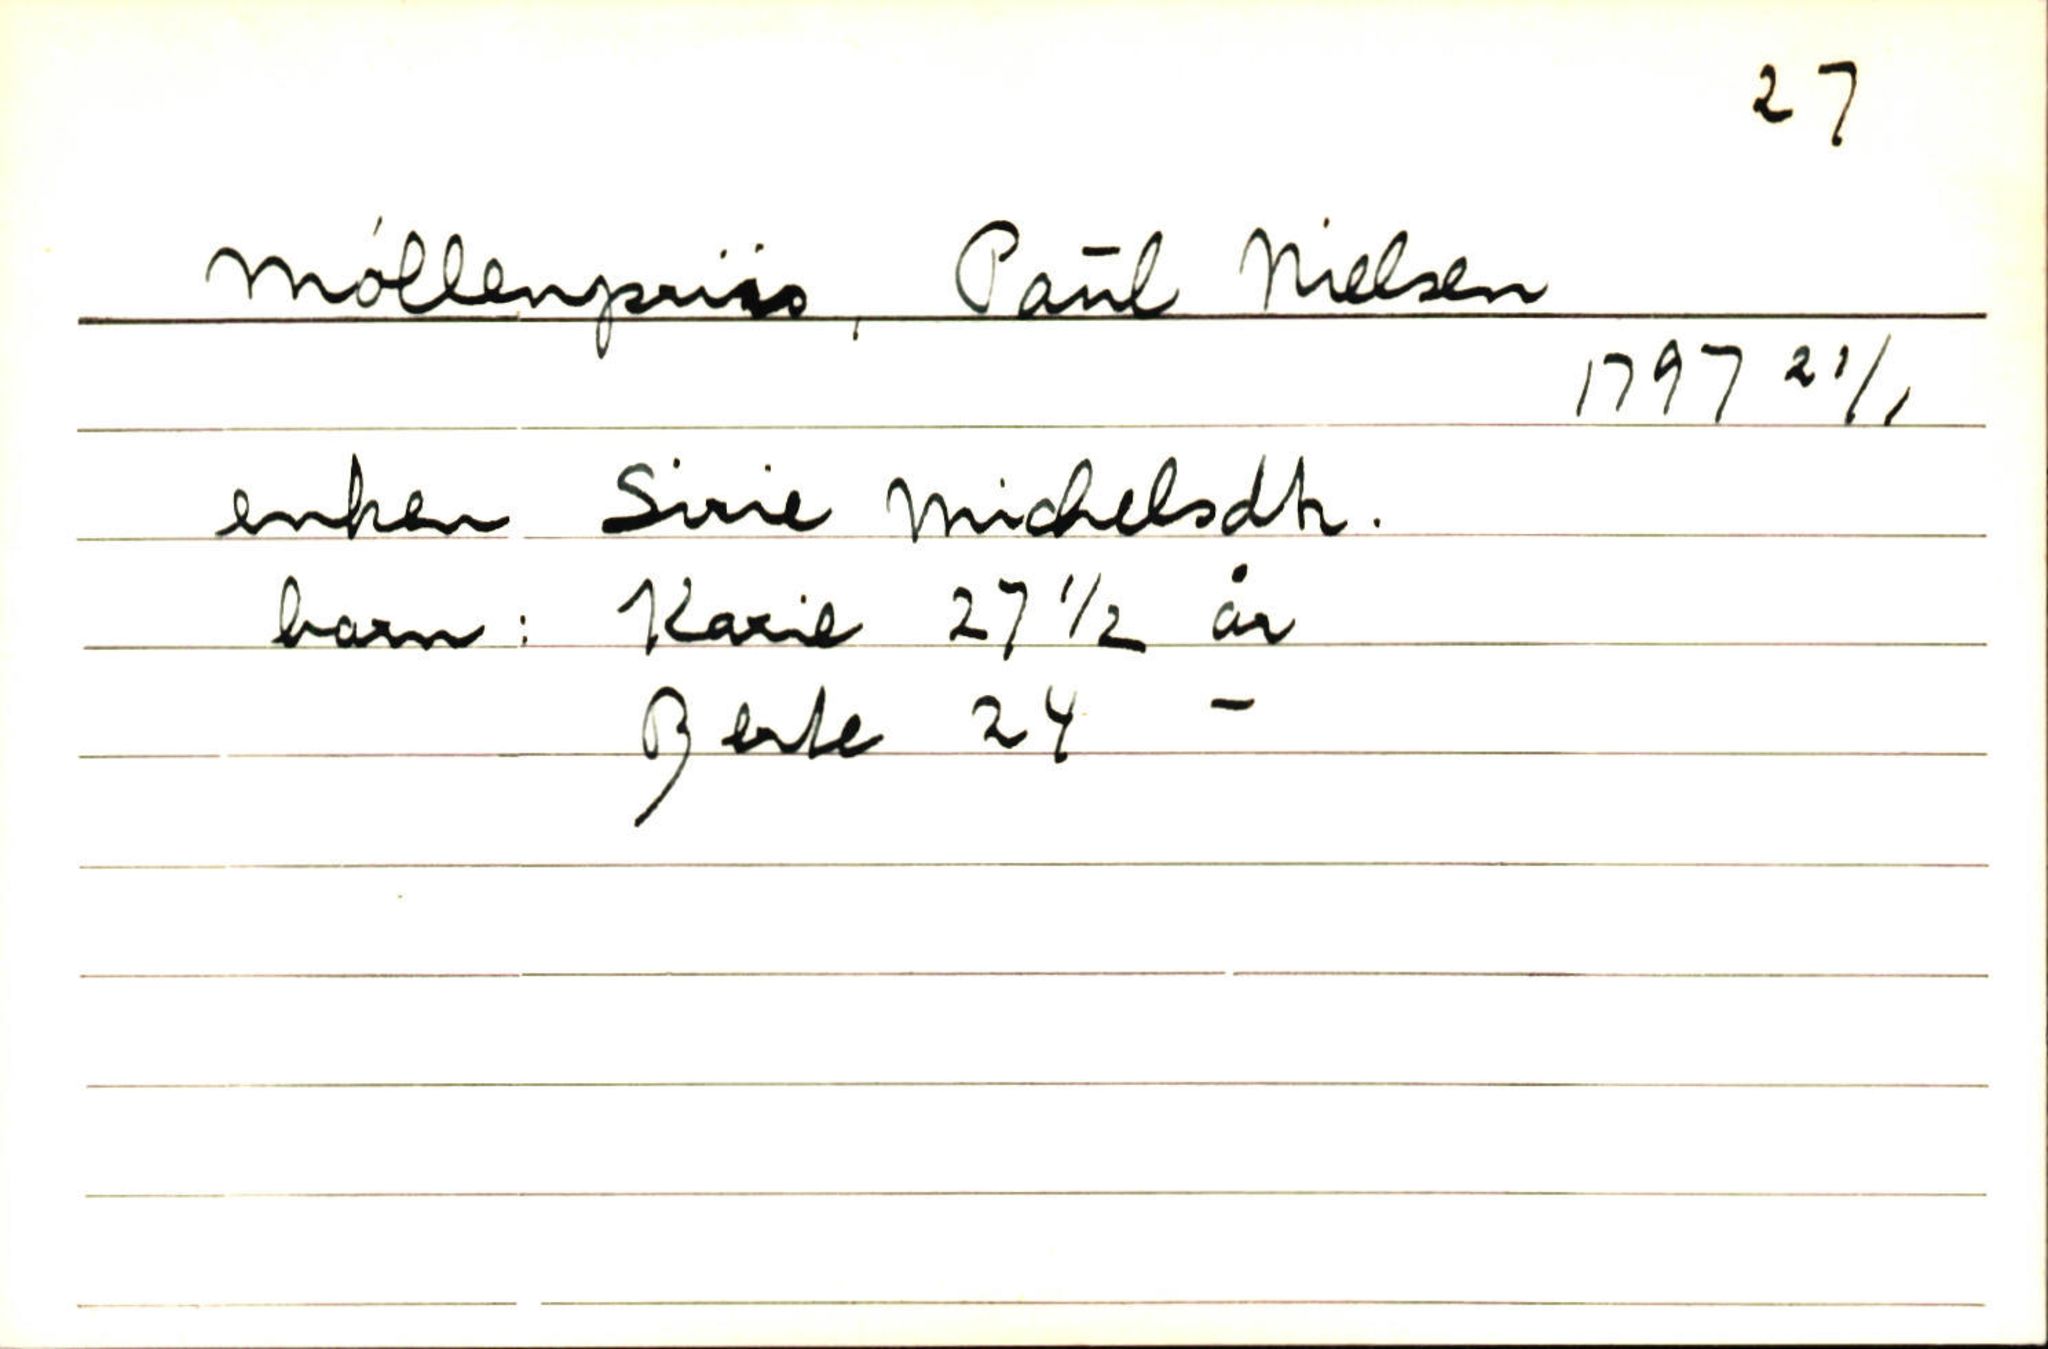 27
Møllenpriis, Paul Nielsen
1797 21/1
enken Sirie Michelsdtr.
barn: Karie 27 1/2 år
Berte 24 -